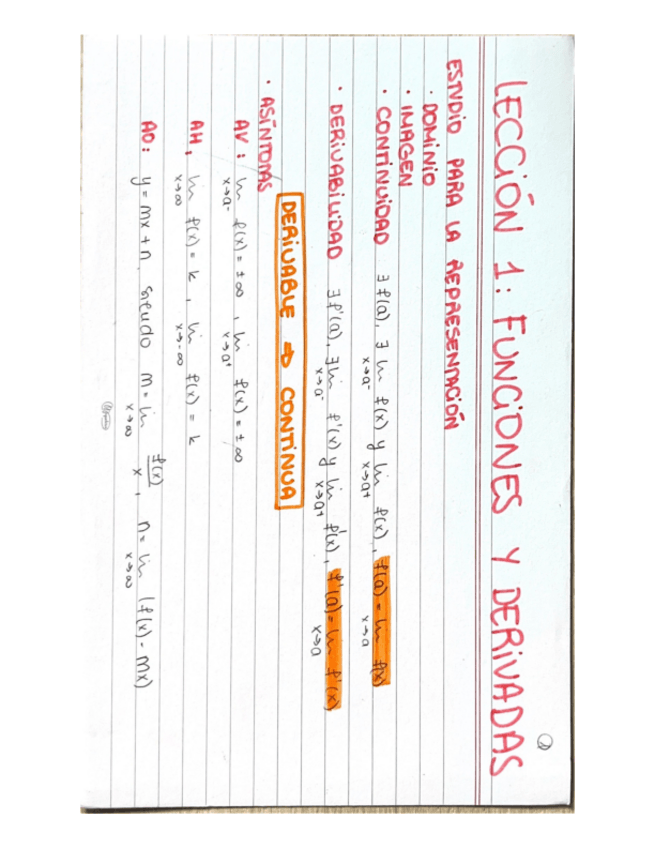 LECCIÓN 1: FUNCIONES Y DERIVADAS
ESTUDIO PARA LA REPRESENTACIÓN
· DOMINIO
· IMAGEN
· CONTINUIDAD ∃ f(a), ∃ lim x→a⁻ f(x) y lim x→a⁺ f(x), f(a) = lim x→a f(x)
· DERIVABILIDAD ∃ f'(a), ∃ lim x→a⁻ f'(x) y lim x→a⁺ f'(x), f'(a) = lim x→a f'(x)
DERIVABLE ⇒ CONTINUA
· ASÍNTOTAS
AV: lim x→a⁻ f(x) = ±∞, lim x→a⁺ f(x) = ±∞
AH, lim x→∞ f(x) = k, lim x→-∞ f(x) = k
AO: y = mx + n siendo m = lim x→∞ f(x)/x, n = lim x→∞ (f(x) - mx)